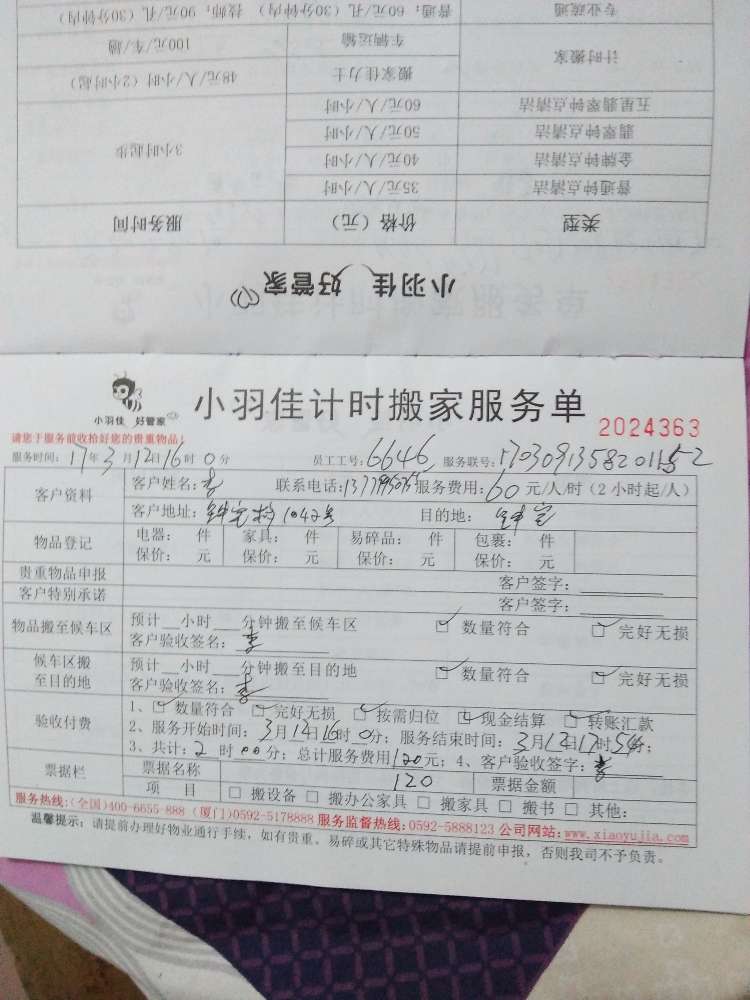 专业疏通 普通：60元/孔（30分钟内） 技师：90元/孔（30分钟内）
计时搬家 车辆运输 100元/车/趟
搬家佳力士 48元/人/小时（2小时起）
五星翡翠钟点清洁 60元/人/小时 3小时起步
翡翠钟点清洁 50元/人/小时
金牌钟点清洁 40元/人/小时
普通钟点清洁 35元/人/小时
类型 价格（元） 服务时间
小羽佳 好管家
小羽佳 好管家
小羽佳计时搬家服务单
2024363
请您于服务前收拾好您的贵重物品！
服务时间：17年3月12日16时0分 员工工号：6646 服务联号：
客户资料 客户姓名：李 联系电话： 服务费用：60元/人/时（2小时起/人）
客户地址： 目的地：
物品登记 电器： 件 家具： 件 易碎品： 件 包裹： 件
保价： 元 保价： 元 保价： 元 保价： 元
贵重物品申报 客户签字：
客户特别承诺 客户签字：
物品搬至候车区 预计__小时___分钟搬至候车区 数量符合 完好无损
客户验收签名：李
候车区搬至目的地 预计__小时___分钟搬至目的地 数量符合 完好无损
客户验收签名：李
验收付费 1、数量符合 完好无损 按需归位 现金结算 转账汇款
2、服务开始时间：3月12日16时0分；服务结束时间：3月12日17时54分；
3、共计：2时00分；总计服务费用120元；4、客户验收签字：李
票据栏 票据名称 120 票据金额
项 目 □ 搬设备 □ 搬办公家具 □ 搬家具 □ 搬书 □ 其他：
服务热线：(全国)400-6655-888 (厦门)0592-5178888 服务监督热线：0592-5888123 公司网站：www.xiaoyujia.com
温馨提示：请提前办理好物业通行手续，如有贵重、易碎或其它特殊物品请提前申报，否则我司不予负责。